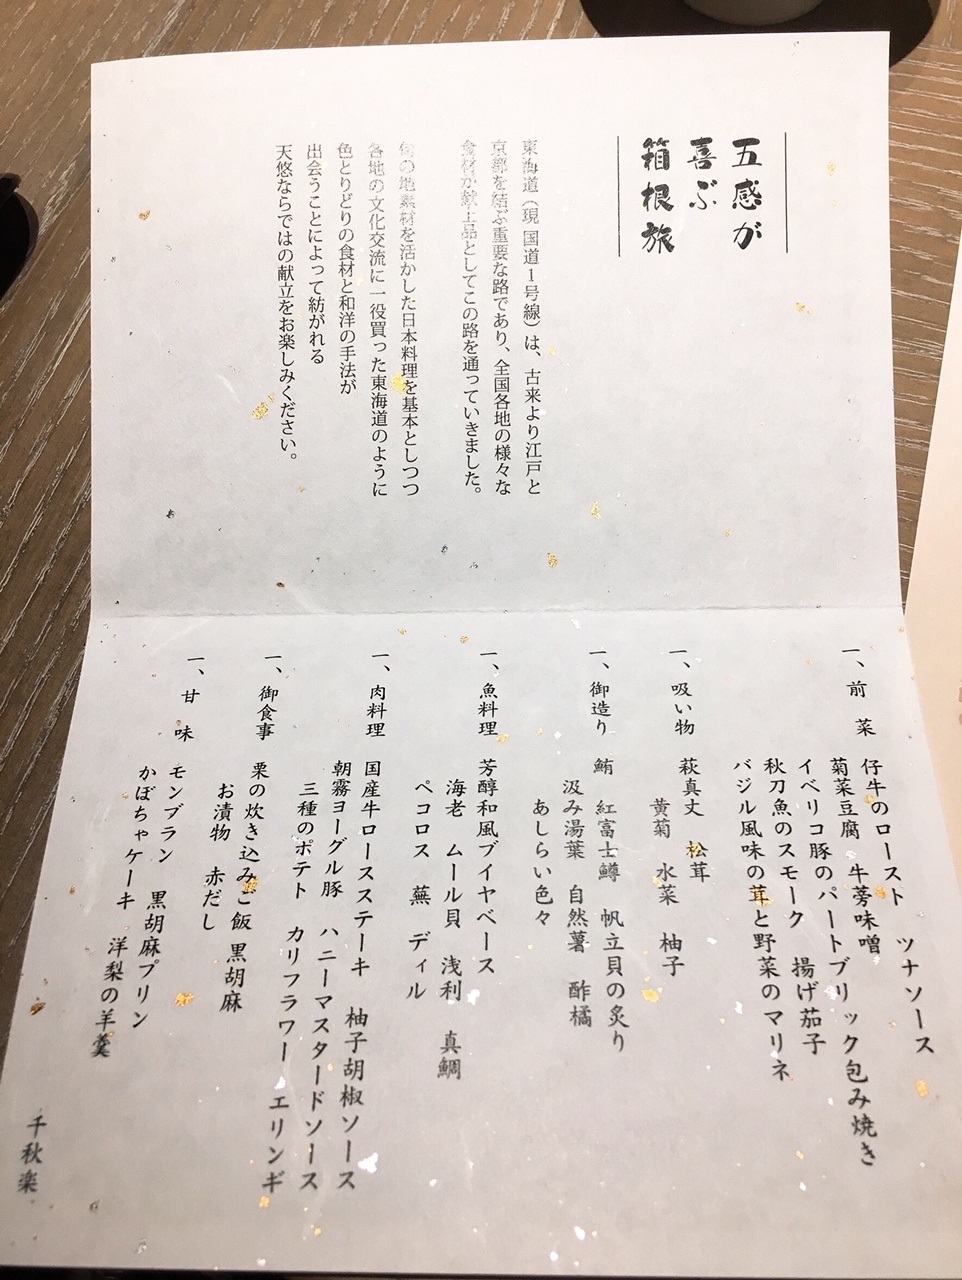 五感が
喜ぶ
箱根旅
東海道（現 国道１号線）は、古来より江戸と
京都を結ぶ重要な路であり、全国各地の様々な
食材が献上品としてこの路を通っていきました。
旬の地素材を活かした日本料理を基本としつつ
各地の文化交流に一役買った東海道のように
色とりどりの食材と和洋の手法が
出会うことによって紡がれる
天悠ならではの献立をお楽しみください。
一、前 菜 仔牛のロースト ツナソース
菊菜豆腐 牛蒡味噌
イベリコ豚のパートブリック包み焼き
秋刀魚のスモーク 揚げ茄子
バジル風味の茸と野菜のマリネ
一、吸い物 萩真丈 松茸
黄菊 水菜 柚子
一、御造り 鮪 紅富士鱒 帆立貝の炙り
汲み湯葉 自然薯 酢橘
あしらい色々
一、魚料理 芳醇和風ブイヤベース
海老 ムール貝 浅利 真鯛
ペコロス 蕪 ディル
一、肉料理 国産牛ロースステーキ 柚子胡椒ソース
朝霧ヨーグル豚 ハニーマスタードソース
三種のポテト カリフラワー エリンギ
一、御食事 栗の炊き込みご飯 黒胡麻
お漬物 赤だし
一、甘 味 モンブラン 黒胡麻プリン
かぼちゃケーキ 洋梨の羊羹
千秋楽